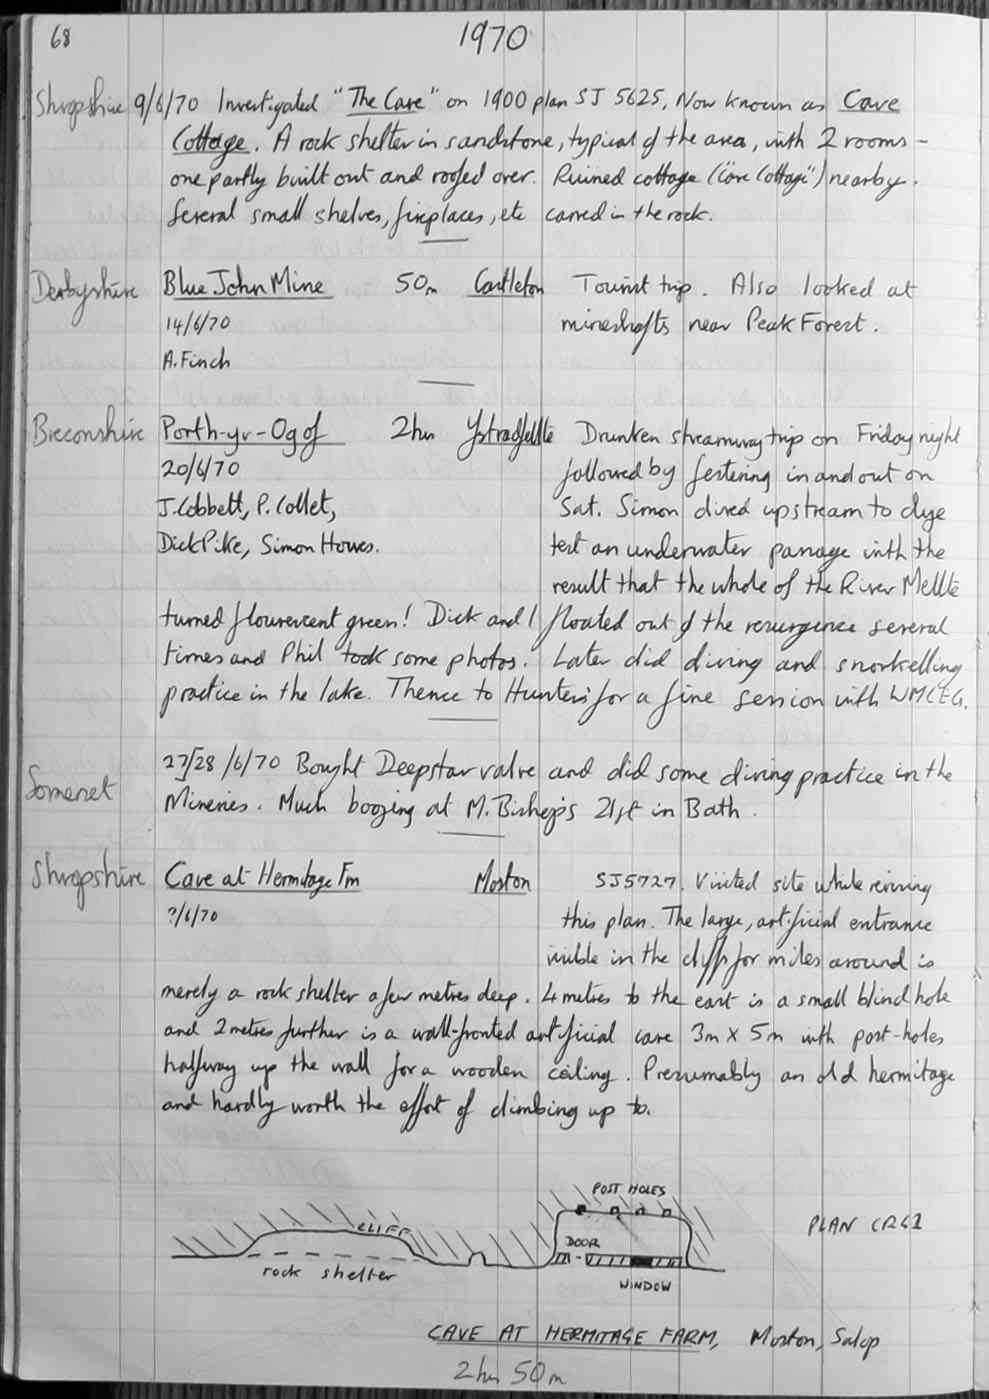 68
1970
Shropshire 9/6/70 Investigated "The Cave" on 1900 plan SJ 5625, Now known as Cave
Cottage. A rock shelter in sandstone, typical of the area, with 2 rooms -
one partly built out and roofed over. Ruined cottage ("Cave Cottage") nearby.
Several small shelves, fireplaces, etc carved in the rock.
Derbyshire Blue John Mine 50m Castleton Tourist trip. Also looked at
14/6/70 mineshafts near Peak Forest.
A. Finch
Breconshire Porth-yr-Ogof 2hrs Ystradfellte Drunken streamway trip on Friday night
20/6/70 followed by festering in and out on
J. Cobbett, P. Collet, Sat. Simon dived upstream to dye
Dick Pike, Simon Howes. test an underwater passage with the
result that the whole of the River Mellte
turned flourescent green! Dick and I floated out of the resurgence several
times and Phil took some photos. Later did diving and snorkelling
practice in the lake. Thence to Hunters' for a fine session with WMCEG.
Somerset 27/28/6/70 Bought Deepstar valve and did some diving practice in the
Mineries. Much boozing at M. Bishop's 21st in Bath.
Shropshire Cave at Hermitage Fm Moston SJ5727. Visited site while revising
?/6/70 this plan. The large, artificial entrance
visible in the cliff for miles around is
merely a rock shelter a few metres deep. 4 metres to the east is a small blind hole
and 2 metres further is a wall-fronted artificial cave 3m x 5m with post-holes
halfway up the wall for a wooden ceiling. Presumably an old hermitage
and hardly worth the effort of climbing up to.
POST HOLES
CLIFF
PLAN CRG1
DOOR
rock shelter
WINDOW
CAVE AT HERMITAGE FARM, Moston, Salop
2hrs 50m